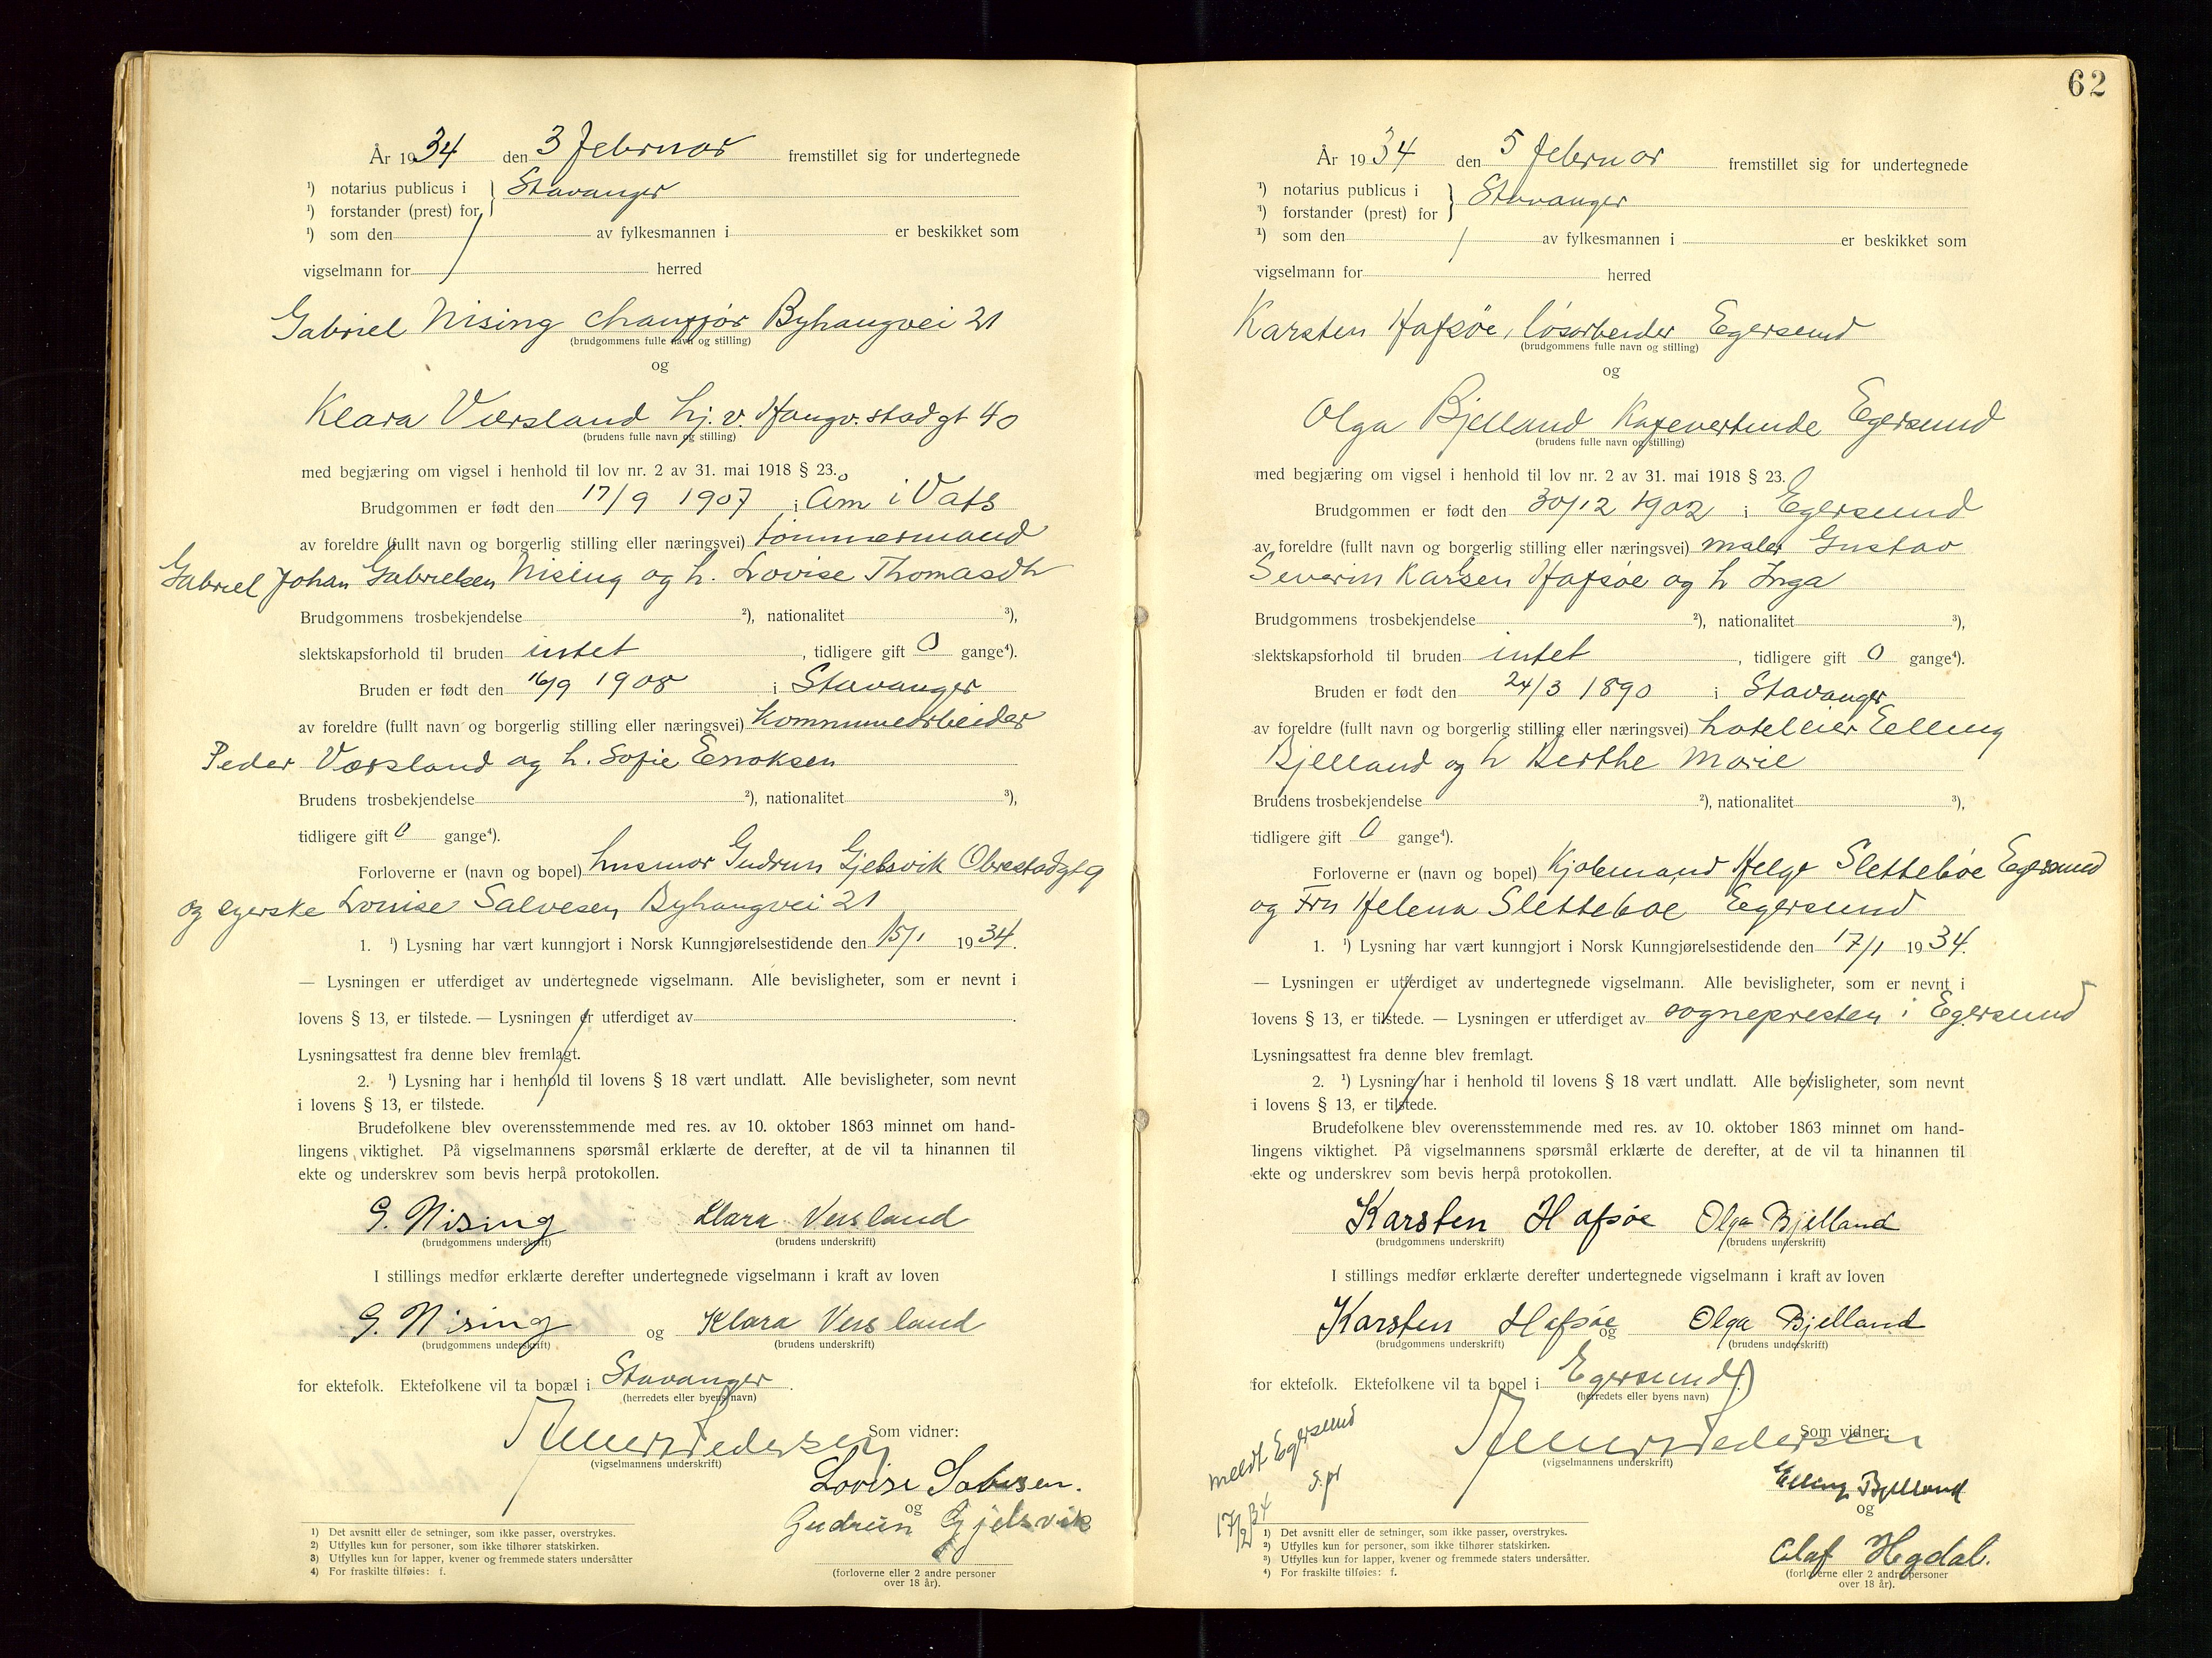 År 1934 den 3 Februar fremstillet sig for undertegnede
¹) notarius publicus i } Stavanger
¹) forstander (prest) for
¹) som den av fylkesmannen i er beskikket som
vigselmann for herred
Gabriel Nising chauffør Byhaugvei 21
(brudgommens fulle navn og stilling)
og
Klara Værsland hj. v. Haugv. stadgt 40
(brudens fulle navn og stilling)
med begjæring om vigsel i henhold til lov nr. 2 av 31. mai 1918 § 23.
Brudgommen er født den 17/9 1907 i Åm i Vats
av foreldre (fullt navn og borgerlig stilling eller næringsvei) tømmermand
Gabriel Johan Gabrielsen Nising og h. Lovise Thomasdtr
Brudgommens trosbekjendelse ²), nationalitet ³),
slektskapsforhold til bruden intet , tidligere gift 0 gange⁴).
Bruden er født den 16/9 1908 i Stavanger
av foreldre (fullt navn og borgerlig stilling eller næringsvei) Kommunearbeider
Peder Værsland og h. Sofie Enoksen
Brudens trosbekjendelse ²), nationalitet ³),
tidligere gift 0 gange⁴).
Forloverne er (navn og bopel) husmor Gudrun Gjelsvik Obrestadgt 9
og syerske Louise Salvesen Byhaugvei 21
1. ¹) Lysning har vært kunngjort i Norsk Kunngjørelsestidende den 15/1 1934.
— Lysningen er utferdiget av undertegnede vigselmann. Alle bevisligheter, som er nevnt i
lovens § 13, er tilstede. — Lysningen er utferdiget av .
Lysningsattest fra denne blev fremlagt.
2. ¹) Lysning har i henhold til lovens § 18 vært undlatt. Alle bevisligheter, som nevnt
i lovens § 13, er tilstede.
Brudefolkene blev overensstemmende med res. av 10. oktober 1863 minnet om hand-
lingens viktighet. På vigselmannens spørsmål erklærte de derefter, at de vil ta hinannen til
ekte og underskrev som bevis herpå protokollen.
G. Nising Klara Versland
(brudgommens underskrift) (brudens underskrift)
I stillings medfør erklærte derefter undertegnede vigselmann i kraft av loven
G. Nising og Klara Versland
(brudgommens underskrift) (brudens underskrift)
for ektefolk. Ektefolkene vil ta bopæl i Stavanger .
(herredets eller byens navn)
Som vidner:
(vigselmannens underskrift)
Lovise Salvesen.
og
Gudrun Gjelsvik
(forloverne eller 2 andre personer
over 18 år).
1) Det avsnitt eller de setninger, som ikke passer, overstrykes.
2) Utfylles kun for personer, som ikke tilhører statskirken.
3) Utfylles kun for lapper, kvener og fremmede staters undersåtter
4) For fraskilte tilføies: f.
62
År 1934 den 5 februar fremstillet sig for undertegnede
¹) notarius publicus i } Stavanger
¹) forstander (prest) for
¹) som den av fylkesmannen i er beskikket som
vigselmann for herred
Karsten Hafsøe, løsarbeider Egersund
(brudgommens fulle navn og stilling)
og
Olga Bjelland Kafevertinde Egersund
(brudens fulle navn og stilling)
med begjæring om vigsel i henhold til lov nr. 2 av 31. mai 1918 § 23.
Brudgommen er født den 30/12 1902 i Egersund
av foreldre (fullt navn og borgerlig stilling eller næringsvei) maler Gustav
Severin Karlsen Hafsøe og h Inga
Brudgommens trosbekjendelse ²), nationalitet ³),
slektskapsforhold til bruden intet , tidligere gift 0 gange⁴).
Bruden er født den 24/3 1890 i Stavanger
av foreldre (fullt navn og borgerlig stilling eller næringsvei) hotellier Elling
Bjelland og h Berthe Marie
Brudens trosbekjendelse ²), nationalitet ³),
tidligere gift 0 gange⁴).
Forloverne er (navn og bopel) Kjøbmand Helge Slettebøe Egersund
og Fru Helena Slettebøe Egersund
1. ¹) Lysning har vært kunngjort i Norsk Kunngjørelsestidende den 17/1 1934.
— Lysningen er utferdiget av undertegnede vigselmann. Alle bevisligheter, som er nevnt i
lovens § 13, er tilstede. — Lysningen er utferdiget av sognepresten i Egersund
Lysningsattest fra denne blev fremlagt.
2. ¹) Lysning har i henhold til lovens § 18 vært undlatt. Alle bevisligheter, som nevnt
i lovens § 13, er tilstede.
Brudefolkene blev overensstemmende med res. av 10. oktober 1863 minnet om hand-
lingens viktighet. På vigselmannens spørsmål erklærte de derefter, at de vil ta hinannen til
ekte og underskrev som bevis herpå protokollen.
Karsten Hafsøe Olga Bjelland
(brudgommens underskrift) (brudens underskrift)
I stillings medfør erklærte derefter undertegnede vigselmann i kraft av loven
Karsten Hafsøe og Olga Bjelland
(brudgommens underskrift) (brudens underskrift)
for ektefolk. Ektefolkene vil ta bopel i Egersund.)
(herredets eller byens navn)
meldt Egersund
s.pr
17/2 34
Som vidner:
(vigselmannens underskrift)
Elling Bjelland
og
Olaf Hegdal.
(forloverne eller 2 andre personer
over 18 år).
1) Det avsnitt eller de setninger, som ikke passer, overstrykes.
2) Utfylles kun for personer, som ikke tilhører statskirken.
3) Utfylles kun for lapper, kvener og fremmede staters undersåtter.
4) For fraskilte tilføies: f.